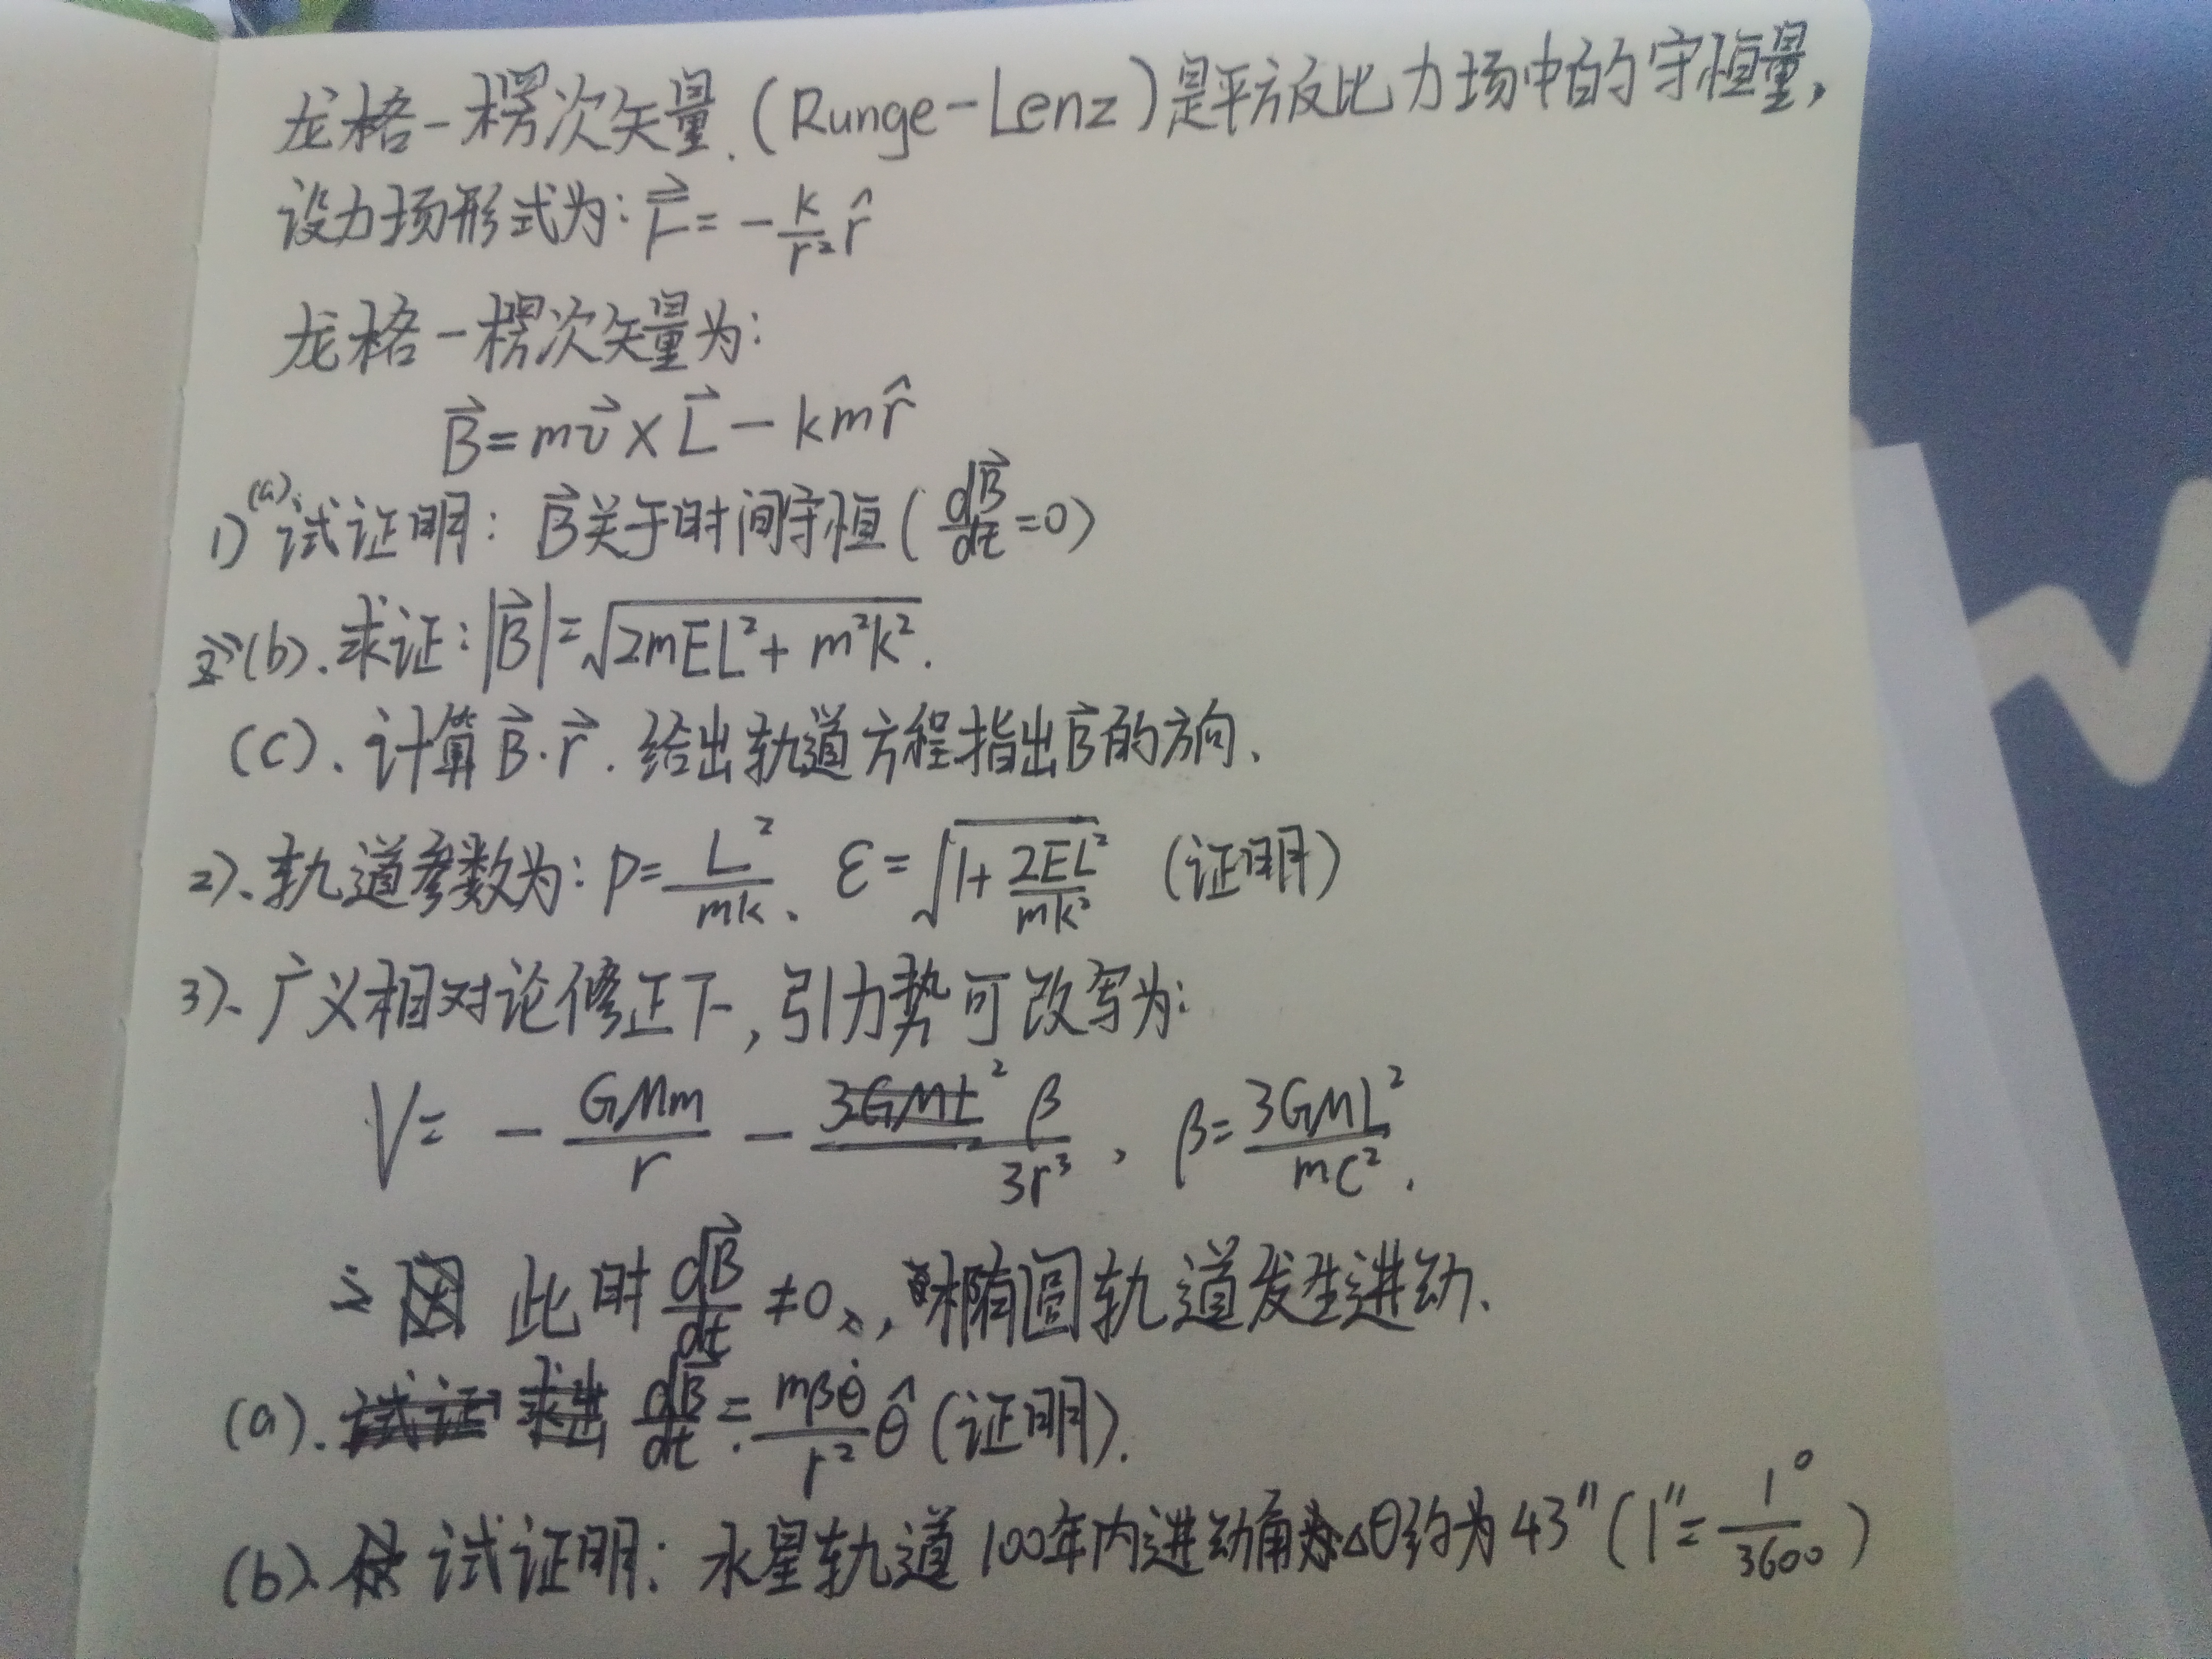 龙格-楞次矢量.(Runge-Lenz)是平方反比力场中的守恒量,
设力场形式为: $\vec{F}=-\frac{k}{r^2}\hat{r}$
龙格-楞次矢量为:
$\vec{B}=m\vec{v}\times\vec{L}-km\hat{r}$
1) (a). 试证明: $\vec{B}$关于时间守恒($\frac{d\vec{B}}{dt}=0$)
(b). 求证: $|\vec{B}|=\sqrt{2mEL^2+m^2k^2}$.
(c). 计算$\vec{B}\cdot\vec{r}$. 给出轨道方程指出$\vec{B}$的方向.
2). 轨道参数为: $p=\frac{L^2}{mk}$、$\varepsilon=\sqrt{1+\frac{2EL^2}{mk^2}}$ (证明)
3). 广义相对论修正下, 引力势可改写为:
$V=-\frac{GMm}{r}-\frac{\beta}{3r^3}$, $\beta=\frac{3GML^2}{mc^2}$.
此时$\frac{d\vec{B}}{dt}\neq0$, 椭圆轨道发生进动.
(a). $\frac{d\vec{B}}{dt}=\frac{m\beta\dot{\theta}}{r^2}\hat{\theta}$ (证明).
(b). 试证明: 水星轨道100年内进动角$\Delta\theta$约为43″($1″=\frac{1^\circ}{3600}$)